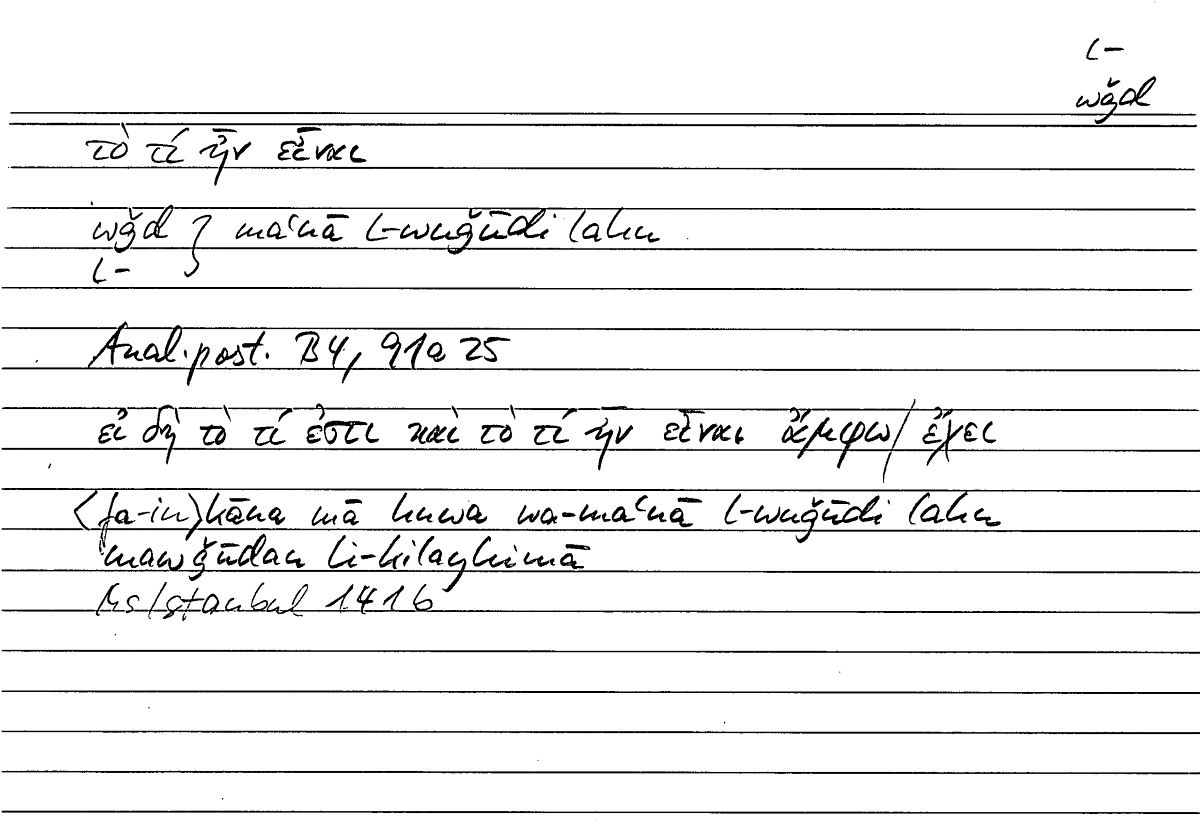 l-
wǧd
τὸ τί ἦν εἶναι
wǧd } maʿnā l-wuǧūdi lahu
l-
Anal. post. B4, 91a 25
εἰ δὴ τὸ τί ἐστι καὶ τὸ τί ἦν εἶναι ἄμφω / ἔχει
〈fa-in〉 kāna mā huwa wa-maʿnā l-wuǧūdi lahu
mawǧūdan li-kilayhimā
Ms Istanbul 1416